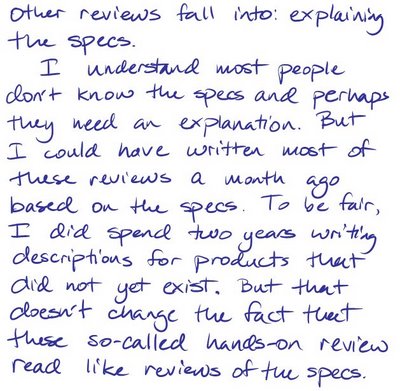 other reviews fall into: explaining
the specs.
I understand most people
don't know the specs and perhaps
they need an explanation. But
I could have written most of
these reviews a month ago
based on the specs. To be fair,
I did spend two years writing
descriptions for products that
did not yet exist. But that
doesn't change the fact that
these so-called hands-on review
read like reviews of the specs.